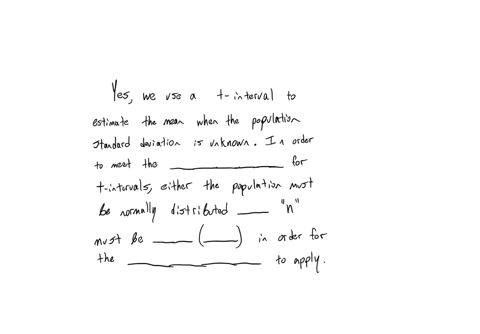 Yes, we use a t-interval to
estimate the mean when the population
standard deviation is unknown. In order
to meet the __________ for
t-intervals, either the population must
be normally distributed ____ "n"
must be ____ (____) in order for
the ____________ to apply.